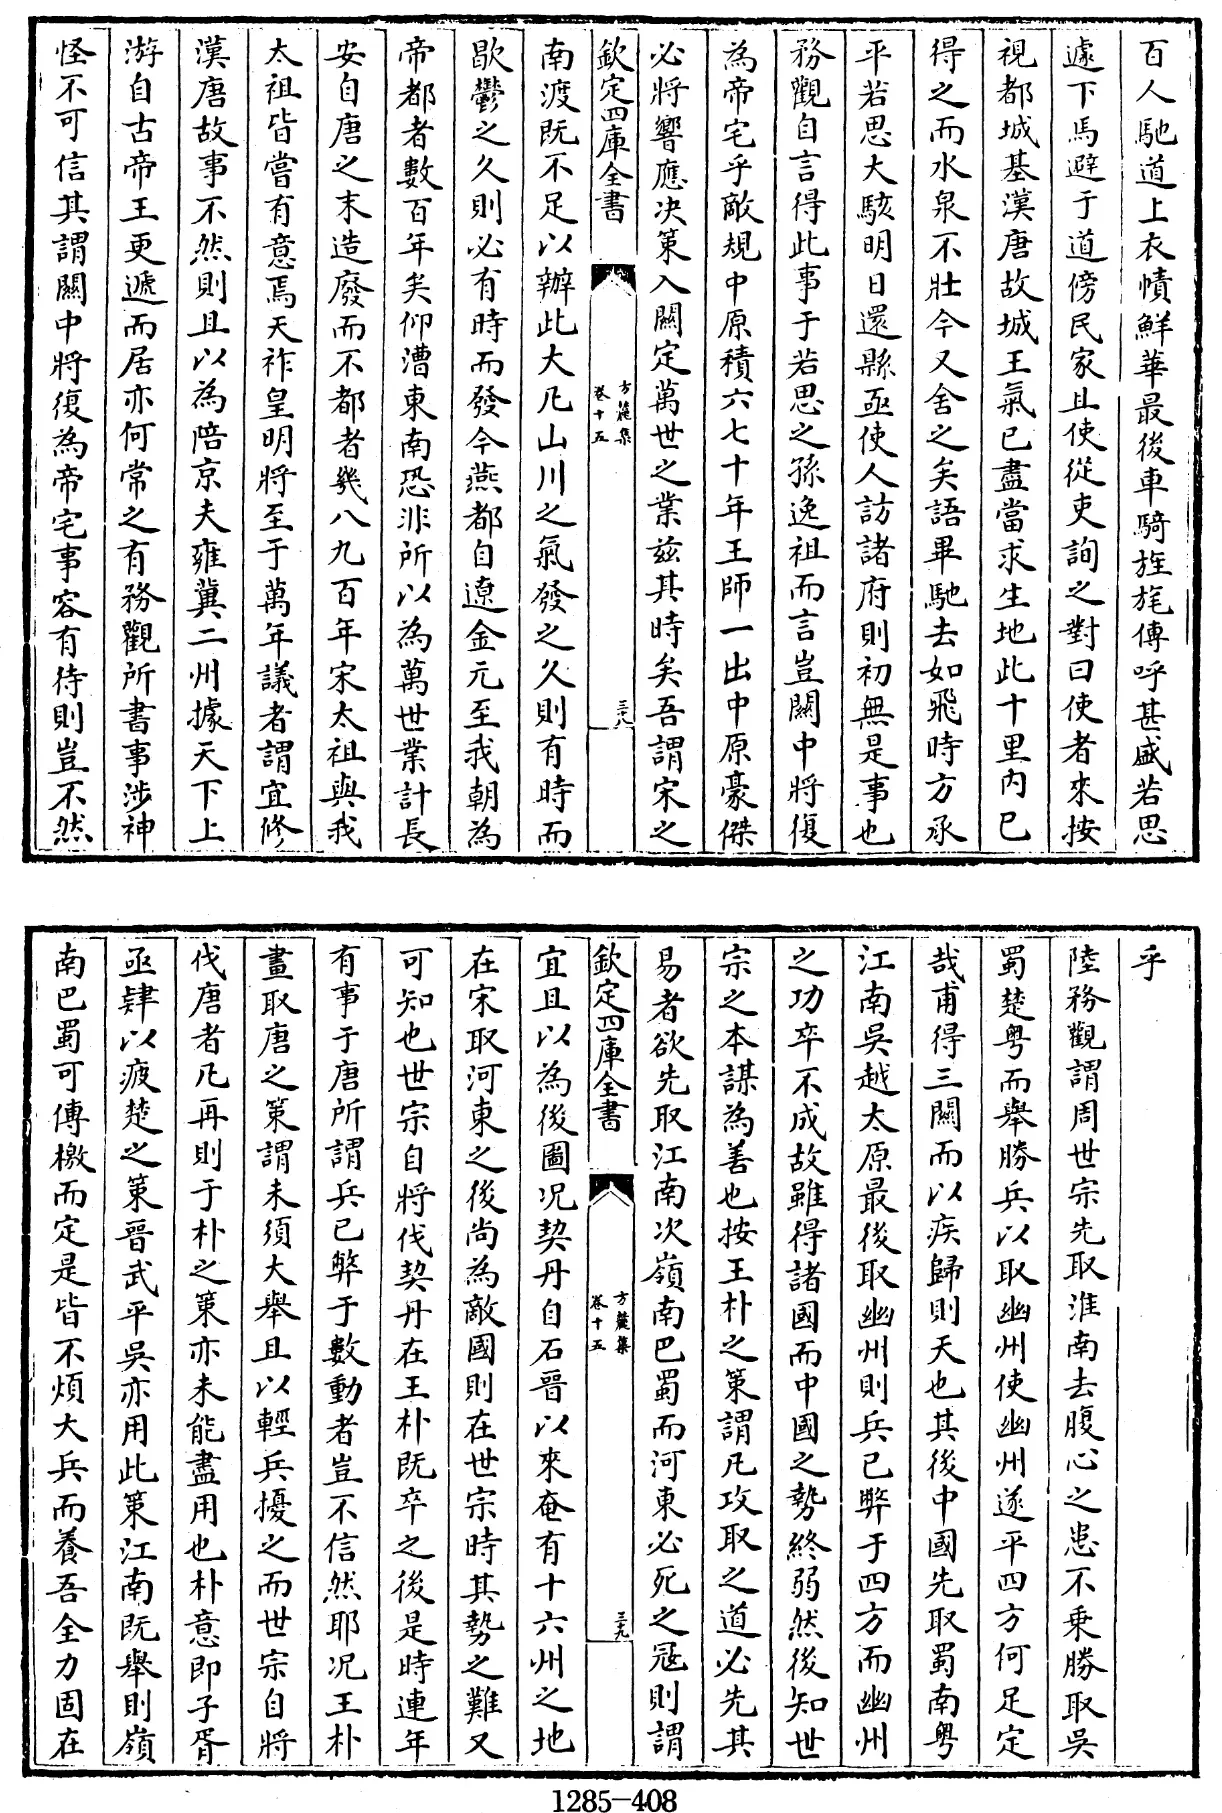 百人馳道上衣幘鮮華最後車騎旌旄傳呼甚盛若思
遽下馬避于道傍民家且使從吏詢之對曰使者來按
視都城基漢唐故城王氣已盡當求生地此十里内已
得之而水泉不壯今又舍之矣語畢馳去如飛時方承
平若思大駭明日還縣亟使人訪諸府則初無是事也
務觀自言得此事于若思之孫逸祖而言豈關中將復
為帝宅乎敵規中原積六七十年王師一出中原豪傑
必將響應决策入關定萬世之業兹其時矣吾謂宋之
欽定四庫全書
方麓集
卷十五
三十八
南渡既不足以辦此大凡山川之氣發之久則有時而
歇鬱之久則必有時而發今燕都自遼金元至我朝為
帝都者數百年矣仰漕東南恐非所以為萬世業計長
安自唐之末造廢而不都者幾八九百年宋太祖與我
太祖皆嘗有意焉天祚皇明將至于萬年議者謂宜修
漢唐故事不然則且以為陪京夫雍冀二州據天下上
游自古帝王更遞而居亦何常之有務觀所書事渉神
怪不可信其謂關中將復為帝宅事容有待則豈不然
乎
陸務觀謂周世宗先取淮南去腹心之患不乗勝取吳
蜀楚粤而舉勝兵以取幽州使幽州遂平四方何足定
哉甫得三關而以疾歸則天也其後中國先取蜀南粤
江南吳越太原最後取幽州則兵已弊于四方而幽州
之功卒不成故雖得諸國而中國之勢終弱然後知世
宗之本謀為善也按王朴之策謂凡攻取之道必先其
易者欲先取江南次嶺南巴蜀而河東必死之冦則謂
欽定四庫全書
方麓集
卷十五
三十九
宜且以為後圖况契丹自石晉以來奄有十六州之地
在宋取河東之後尚為敵國則在世宗時其勢之難又
可知也世宗自將伐契丹在王朴既卒之後是時連年
有事于唐所謂兵已弊于數動者豈不信然耶况王朴
畫取唐之策謂未須大舉且以輕兵擾之而世宗自將
伐唐者凡再則于朴之策亦未能盡用也朴意即子胥
亟肄以疲楚之策晉武平吳亦用此策江南既舉則嶺
南巴蜀可傳檄而定是皆不煩大兵而養吾全力固在
1285-408